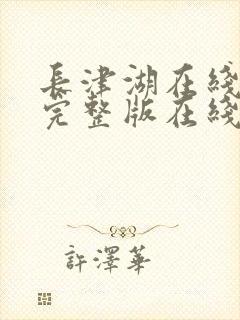 長津湖在綫
完整版在綫
許澤華